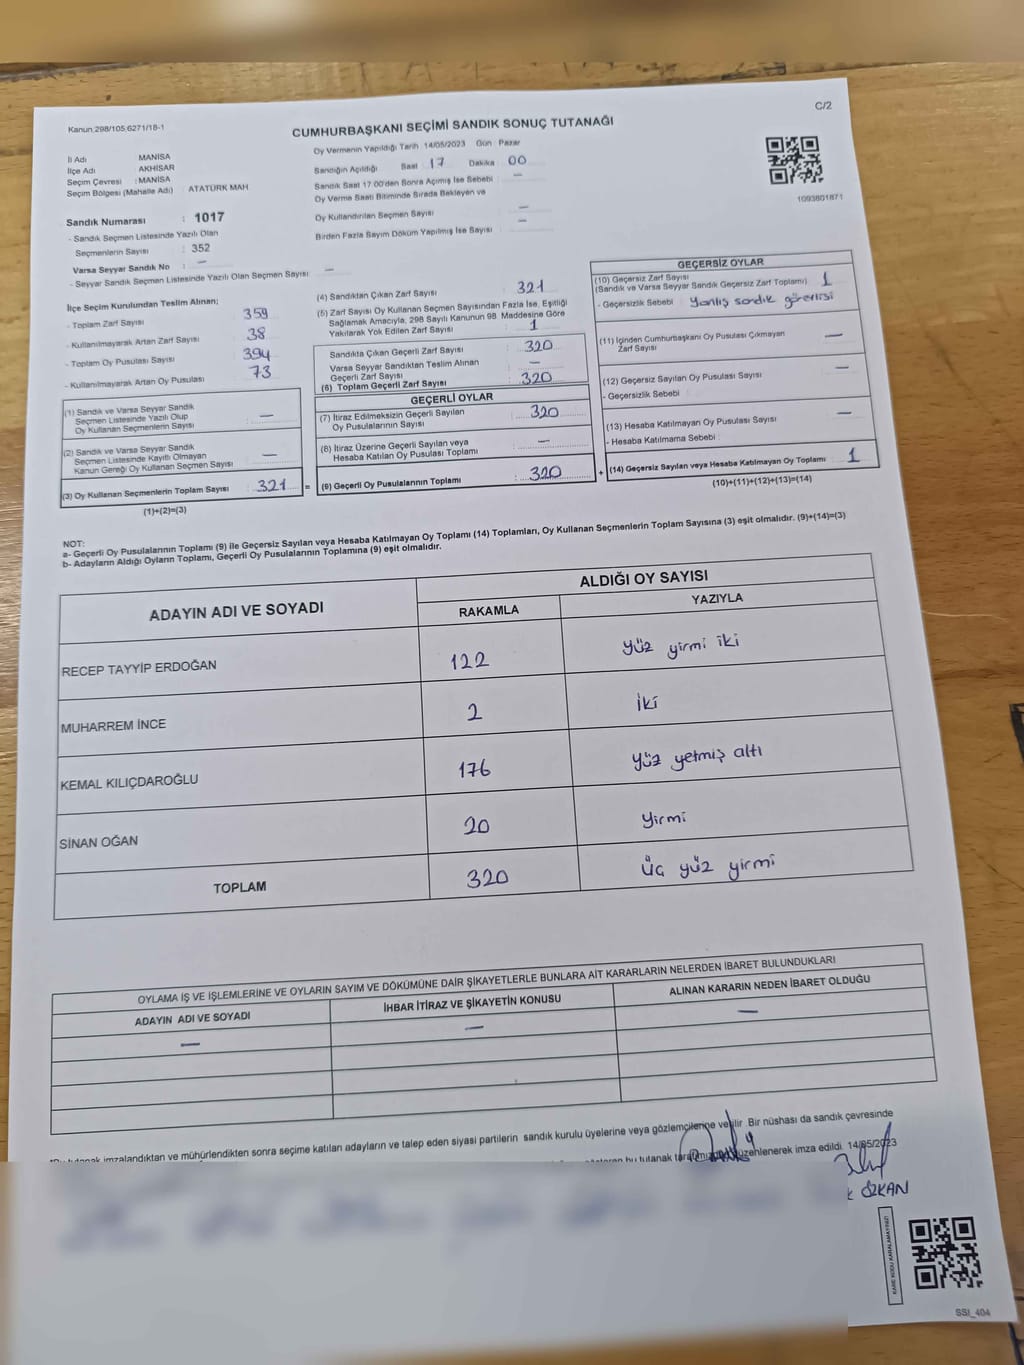 C/2
Kanun:298/105,6271/18-1
CUMHURBAŞKANI SEÇİMİ SANDIK SONUÇ TUTANAĞI
İl Adı MANİSA
İlçe Adı AKHİSAR
Seçim Çevresi : MANİSA
Seçim Bölgesi (Mahalle Adı) : ATATÜRK MAH
Sandık Numarası : 1017
- Sandık Seçmen Listesinde Yazılı Olan
Seçmenlerin Sayısı : 352
Varsa Seyyar Sandık No : —
- Seyyar Sandık Seçmen Listesinde Yazılı Olan Seçmen Sayısı : —
Oy Vermenin Yapıldığı Tarih 14/05/2023 Gün Pazar
Sandığın Açıldığı Saat 17 Dakika 00
Sandık Saat 17:00'den Sonra Açımış İse Sebebi : —
Oy Verme Saati Bitiminde Sırada Bekleyen ve
Oy Kullandırılan Seçmen Sayısı : —
Birden Fazla Sayım Döküm Yapılmış İse Sayısı : —
1093801871
İlçe Seçim Kurulundan Teslim Alınan;
- Toplam Zarf Sayısı 359
- Kullanılmayarak Artan Zarf Sayısı 38
- Toplam Oy Pusulası Sayısı 394
- Kullanılmayarak Artan Oy Pusulası 73
(1) Sandık ve Varsa Seyyar Sandık
Seçmen Listesinde Yazılı Olup
Oy Kullanan Seçmenlerin Sayısı : —
(2) Sandık ve Varsa Seyyar Sandık
Seçmen Listesinde Kayıtlı Olmayan
Kanun Gereği Oy Kullanan Seçmen Sayısı : —
(3) Oy Kullanan Seçmenlerin Toplam Sayısı : 321 =
(1)+(2)=(3)
(4) Sandıktan Çıkan Zarf Sayısı : 321
(5) Zarf Sayısı Oy Kullanan Seçmen Sayısından Fazla İse, Eşitliği
Sağlamak Amacıyla, 298 Sayılı Kanunun 98. Maddesine Göre
Yakılarak Yok Edilen Zarf Sayısı : 1
Sandıkta Çıkan Geçerli Zarf Sayısı : 320
Varsa Seyyar Sandıktan Teslim Alınan
Geçerli Zarf Sayısı : —
(6) Toplam Geçerli Zarf Sayısı : 320
GEÇERLİ OYLAR
(7) İtiraz Edilmeksizin Geçerli Sayılan
Oy Pusulalarının Sayısı : 320
(8) İtiraz Üzerine Geçerli Sayılan veya
Hesaba Katılan Oy Pusulası Toplamı : —
(9) Geçerli Oy Pusulalarının Toplamı : 320 +
GEÇERSİZ OYLAR
(10) Geçersiz Zarf Sayısı
(Sandık ve Varsa Seyyar Sandık Geçersiz Zarf Toplamı) : 1
- Geçersizlik Sebebi : Yanlış sandık görevlisi
(11) İçinden Cumhurbaşkanı Oy Pusulası Çıkmayan
Zarf Sayısı —
(12) Geçersiz Sayılan Oy Pusulası Sayısı : —
- Geçersizlik Sebebi :
(13) Hesaba Katılmayan Oy Pusulası Sayısı : —
- Hesaba Katılmama Sebebi :
(14) Geçersiz Sayılan veya Hesaba Katılmayan Oy Toplamı : 1
(10)+(11)+(12)+(13)=(14)
NOT:
a- Geçerli Oy Pusulalarının Toplamı (9) ile Geçersiz Sayılan veya Hesaba Katılmayan Oy Toplamı (14) Toplamları, Oy Kullanan Seçmenlerin Toplam Sayısına (3) eşit olmalıdır. (9)+(14)=(3)
b- Adayların Aldığı Oyların Toplamı, Geçerli Oy Pusulalarının Toplamına (9) eşit olmalıdır.
ADAYIN ADI VE SOYADI ALDIĞI OY SAYISI
RAKAMLA YAZIYLA
RECEP TAYYİP ERDOĞAN 122 yüz yirmi iki
MUHARREM İNCE 2 iki
KEMAL KILIÇDAROĞLU 176 yüz yetmiş altı
SİNAN OĞAN 20 yirmi
TOPLAM 320 üç yüz yirmi
OYLAMA İŞ VE İŞLEMLERİNE VE OYLARIN SAYIM VE DÖKÜMÜNE DAİR ŞİKAYETLERLE BUNLARA AİT KARARLARIN NELERDEN İBARET BULUNDUKLARI
ADAYIN ADI VE SOYADI İHBAR İTİRAZ VE ŞİKAYETİN KONUSU ALINAN KARARIN NEDEN İBARET OLDUĞU
— — —
imzalandıktan ve mühürlendikten sonra seçime katılan adayların ve talep eden siyasi partilerin sandık kurulu üyelerine veya gözlemcilerine verilir. Bir nüshası da sandık çevresinde
bu tutanak düzenlenerek imza edildi. 14/05/2023
ÖZKAN
KARE KODU KARALAMAYINIZ!
SSI_404